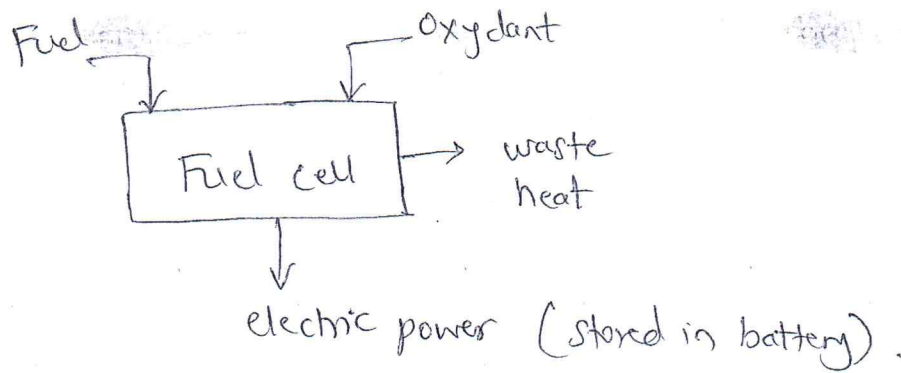 Fuel
Oxydant
Fuel cell
waste
heat
electric power (stored in battery).